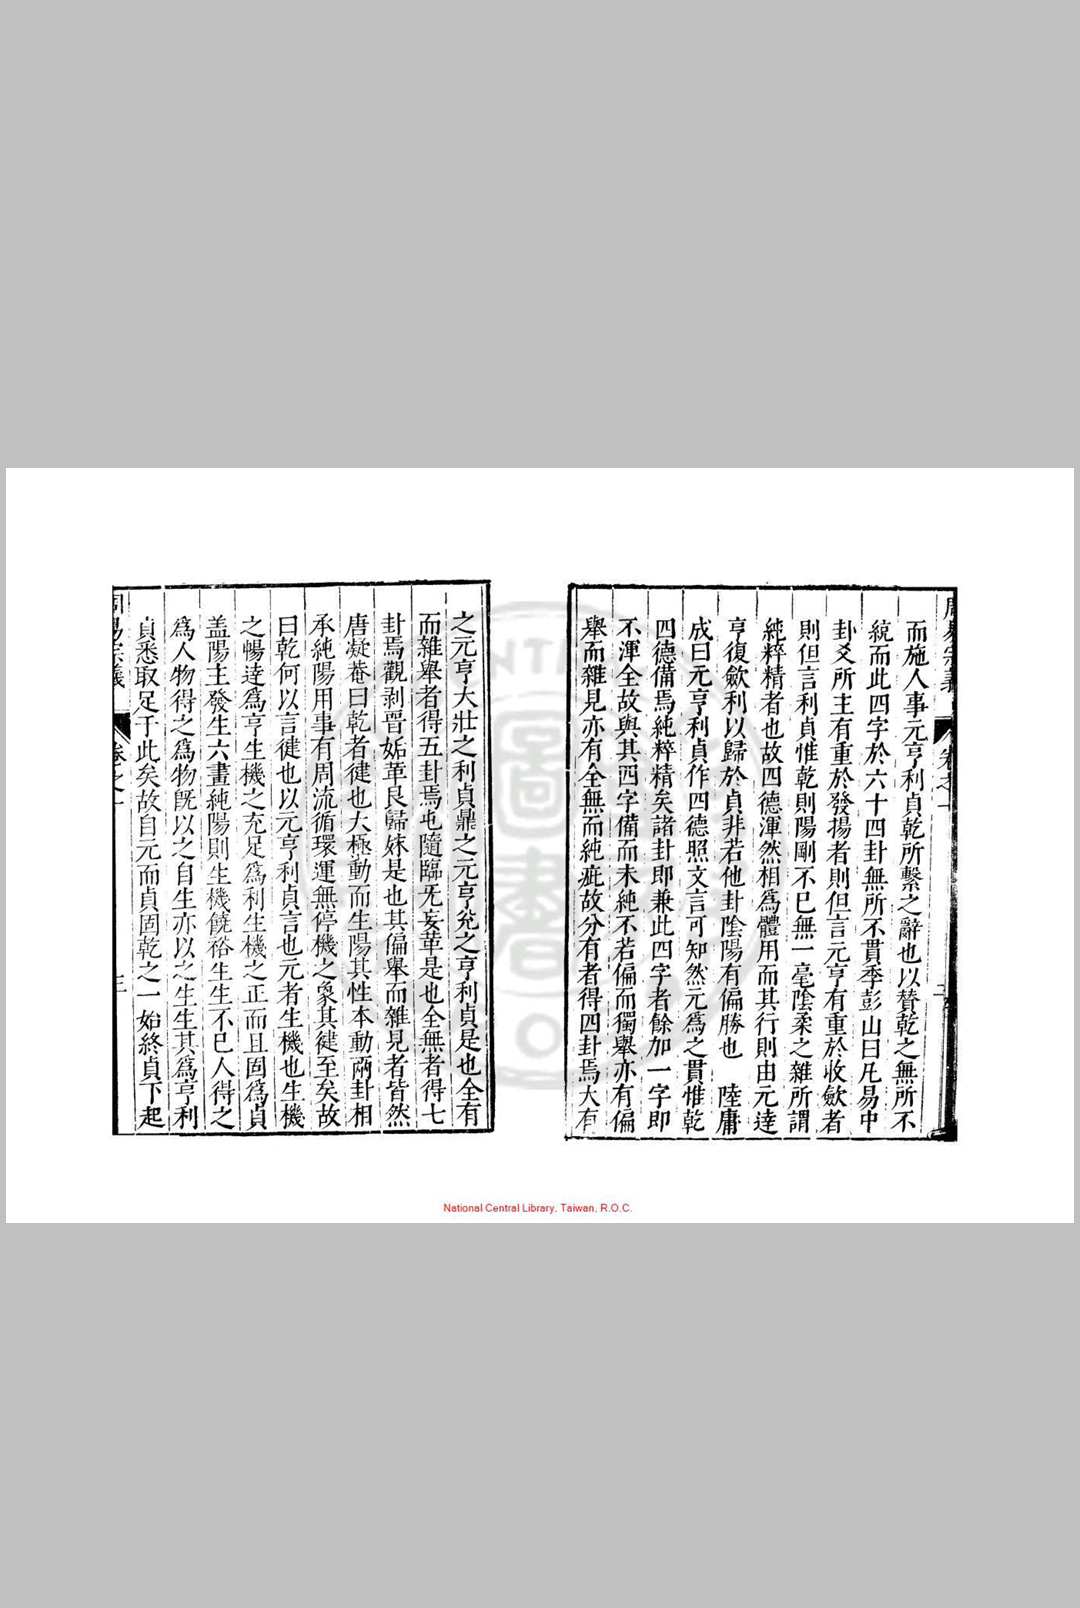 周易宗義 卷之一 三
而施人事元亨利貞乾所繫之辭也以賛乾之無所不
統而此四字於六十四卦無所不貫季彭山曰凡易中
卦爻所主有重於發揚者則但言元亨有重於收斂者
則但言利貞惟乾則陽剛不已無一毫陰柔之雜所謂
純粹精者也故四德渾然相爲體用而其行則由元達
亨復斂利以歸於貞非若他卦陰陽有偏勝也 陸庸
成曰元亨利貞作四德照文言可知然元爲之貫惟乾
四德備焉純粹精矣諸卦即兼此四字者餘加一字即
不渾全故與其四字備而未純不若偏而獨舉亦有偏
舉而雜見亦有全無而純疵故分有者得四卦焉大有
之元亨大壯之利貞鼎之元亨兌之亨利貞是也全有
而雜舉者得五卦焉屯隨臨无妄革是也全無者得七
卦焉觀剥晉姤革艮歸妹是也其偏舉而雜見者皆然
唐凝菴曰乾者健也大極動而生陽其性本動兩卦相
承純陽用事有周流循環運無停機之象其健至矣故
曰乾何以言健也以元亨利貞言也元者生機也生機
之暢達爲亨生機之充足爲利生機之正而且固爲貞
盖陽主發生六畫純陽則生機饒裕生生不已人得之
爲人物得之爲物旣以之自生亦以之生生其爲亨利
貞悉取足于此矣故自元而貞固乾之一始終貞下起
周易宗義 卷之一 三
National Central Library, Taiwan, R.O.C.